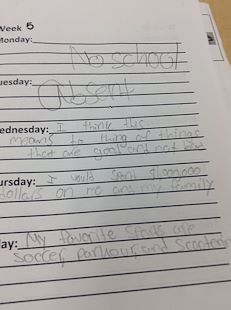 Week 5
Monday:
No school
uesday:
Absent
ednesday: I think this
means to thing of things
that are good and not bad
ursday: I would spend $1,000,000
dollars on me and my family
ay: My favorite sports are
soccer, parkour, and